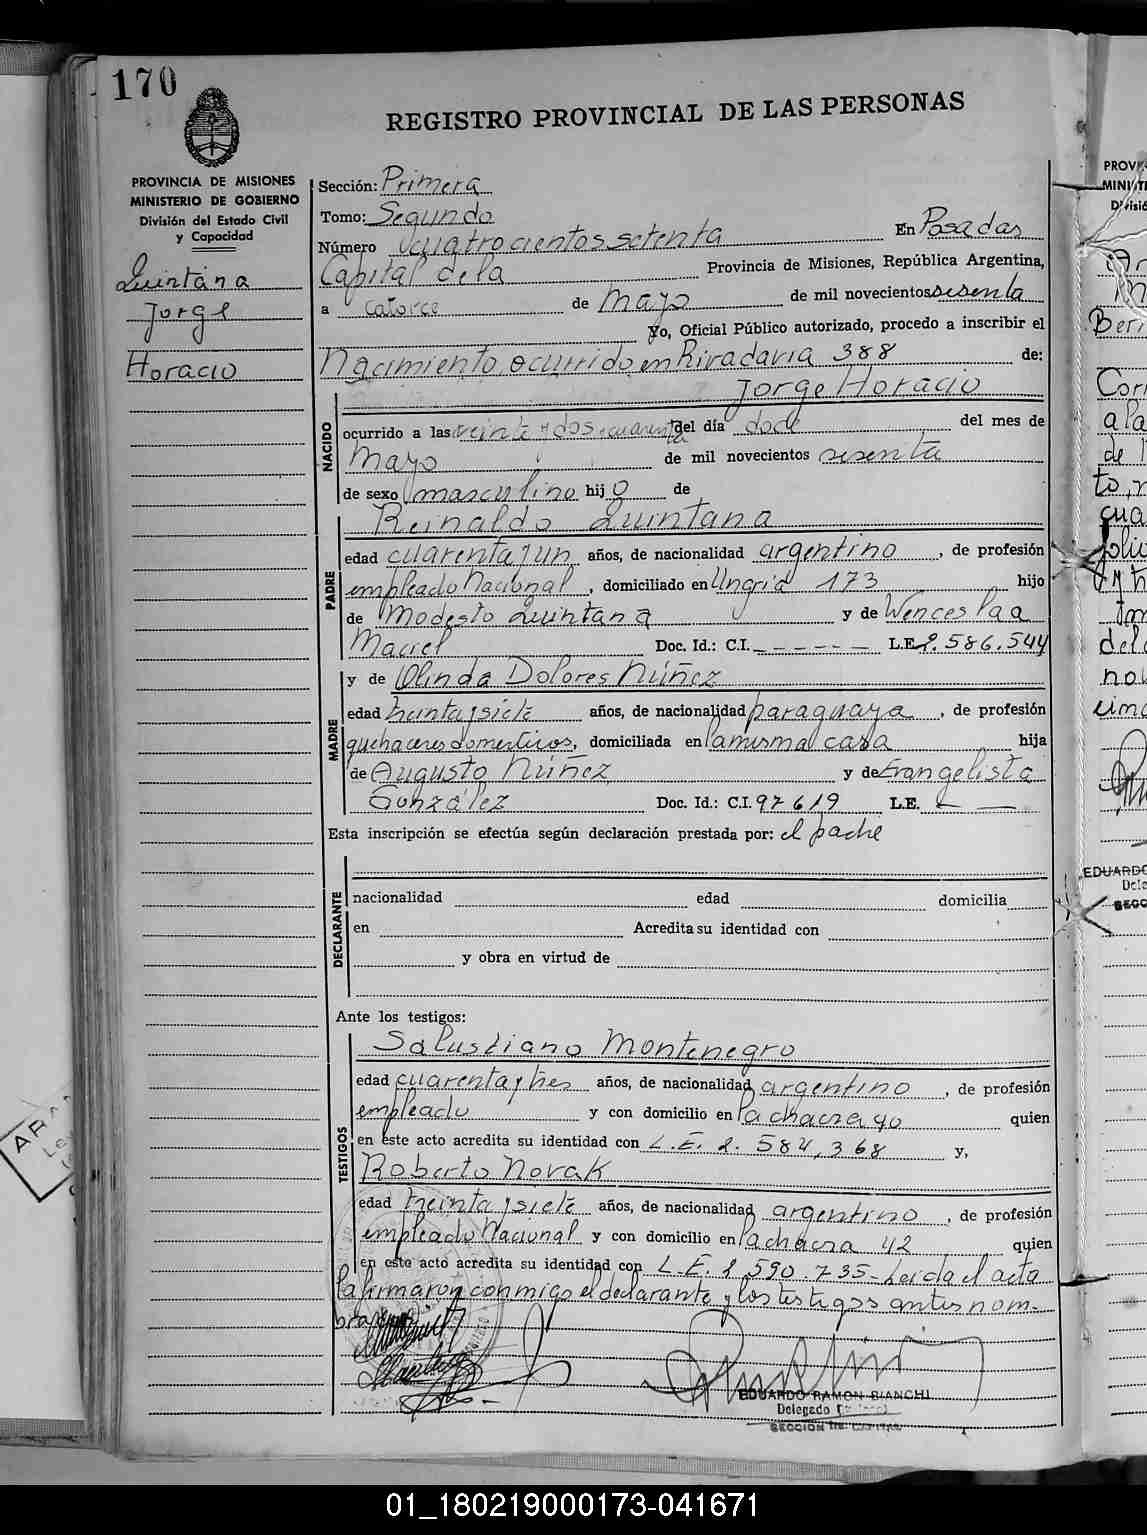 170
REGISTRO PROVINCIAL DE LAS PERSONAS
PROVINCIA DE MISIONES
MINISTERIO DE GOBIERNO
División del Estado Civil
y Capacidad
Quintana
Jorge
Horacio
Sección: Primera
Tomo: Segundo
Número cuatrocientos setenta En Posadas
Capital de la Provincia de Misiones, República Argentina,
a catorce de mayo de mil novecientos sesenta
Yo, Oficial Público autorizado, procedo a inscribir el
Nacimiento ocurrido en Rivadavia 388 de:
Jorge Horacio
NACIDO
ocurrido a las veinte y dos cuarenta del día doce del mes de
Mayo de mil novecientos sesenta
de sexo masculino hijo de
Reinaldo Quintana
PADRE
edad cuarenta y un años, de nacionalidad argentino, de profesión
empleado Nacional, domiciliado en Ungría 173 hijo
de Modesto Quintana y de Wenceslaa
Maciel Doc. Id.: C.I. - - - - - - L.E. 2.586.544
y de Olinda Dolores Núñez
MADRE
edad treinta y siete años, de nacionalidad paraguaya, de profesión
quehaceres domesticos, domiciliada en la misma casa hija
de Augusto Núñez y de Evangelista
González Doc. Id.: C.I. 97619 L.E. — —
Esta inscripción se efectúa según declaración prestada por: el padre
DECLARANTE
nacionalidad edad domicilia
en Acredita su identidad con
y obra en virtud de
Ante los testigos:
TESTIGOS
Salustiano Montenegro
edad cuarenta y tres años, de nacionalidad argentino, de profesión
empleado y con domicilio en la chacra 40 quien
en este acto acredita su identidad con L.E. 2.584,368 y,
Roberto Novak
edad treinta y siete años, de nacionalidad argentino, de profesión
empleado Nacional y con domicilio en la chacra 42 quien
en este acto acredita su identidad con L.E. 2 590.735- Leida el acta
la firmaron conmigo el declarante y los testigos antes nom-
brados
EDUARDO RAMON BIANCHI
Delegado
SECCION 1ra. CAPITAL
01_180219000173-041671